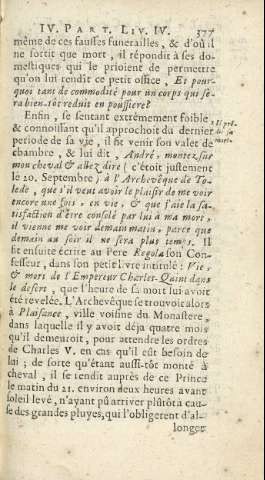 IV. PART. LIV. IV. 577
même de ces fausses funerailles, & d'où il
ne sortit que mort, il répondit à ses do-
mestiques qui le prioient de permettre
qu'on lui rendît ce petit office, Et pour-
quoi tant de commodité pour un corps qui se-
ra bien-tôt reduit en poussiere?
Enfin, se sentant extrêmement foible
& connoissant qu'il approchoit du dernier
periode de sa vie, il fit venir son valet de
chambre, & lui dit, André, montez sur
mon cheval & allez dire (c'étoit justement
le 20. Septembre) à l'Archevêque de To-
lede, que s'il veut avoir le plaisir de me voir
encore une fois, en vie, & que j'aie la sa-
tisfaction d'être consolé par lui à ma mort,
il vienne me voir demain matin, parce que
demain au soir il ne sera plus temps. Il
fit ensuite écrire au Pere Regola son Con-
fesseur, dans son petit livre intitulé: Vie,
& mort de l'Empereur Charles-Quint dans
le desert, que l'heure de sa mort lui avoit
été revelée. L'Archevêque se trouvoit alors
à Plaisance, ville voisine du Monastere,
dans laquelle il y avoit déja quatre mois
qu'il demeuroit, pour attendre les ordres
de Charles V. en cas qu'il eût besoin de
lui; de sorte qu'étant aussi-tôt monté à
cheval, il se rendit auprès de ce Prince
le matin du 21. environ deux heures avant
soleil levé, n'ayant pû arriver plûtôt à cau-
se des grandes pluyes, qui l'obligerent d'al-
longer